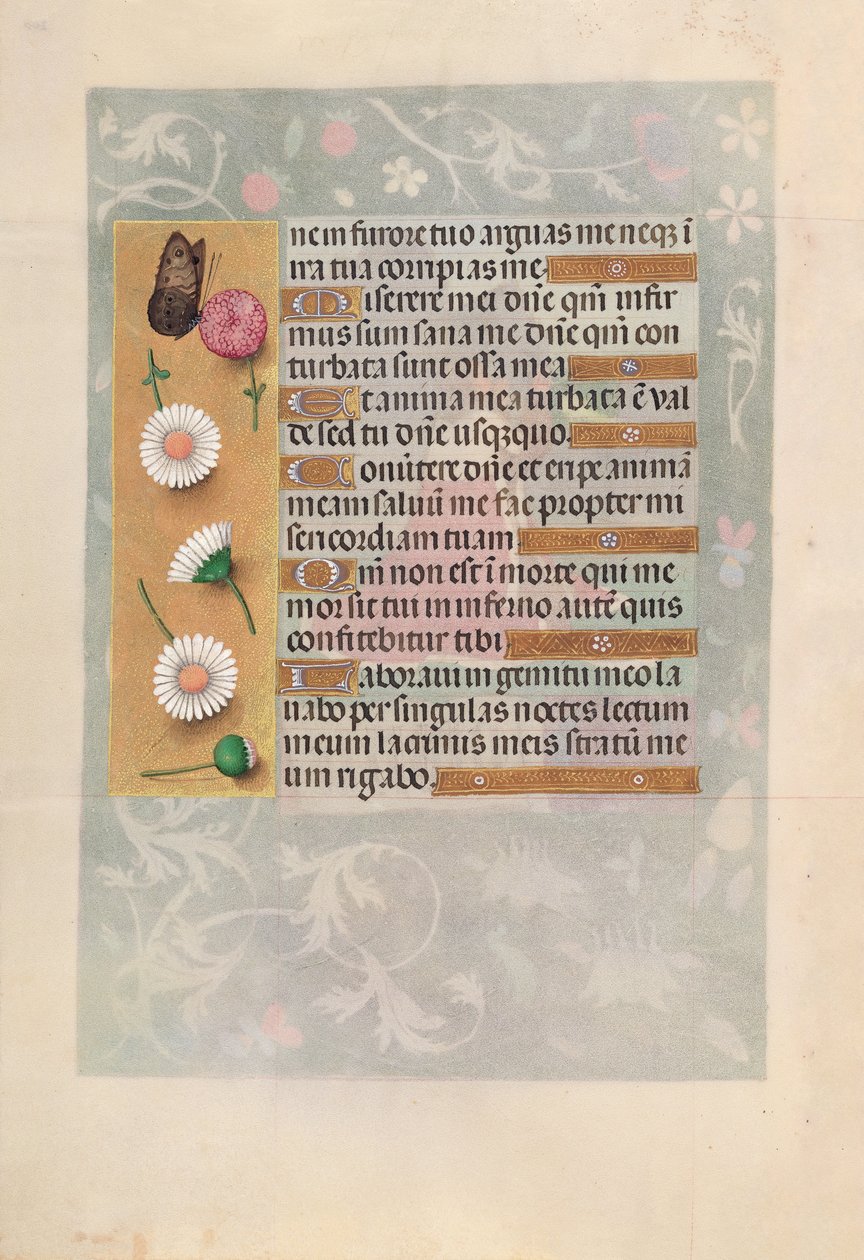 ne in furore tuo arguas me neqꝫ ĩ
ira tua corripias me.
Miserere mei dñe qm̃ infir
mus sum sana me dñe qm̃ con
turbata sunt ossa mea.
Et anima mea turbata ẽ val
de sed tu dñe usqꝫquo.
Conũtere dñe et eripe animã
meam saluũ me fac propter mi
sericordiam tuam.
Qm̃ non est ĩ morte qui me
mor sit tui in inferno autẽ quis
confitebitur tibi.
Laboraui in gemitu meo la
uabo per singulas noctes lectum
meum lacrimis meis stratũ me
um rigabo.